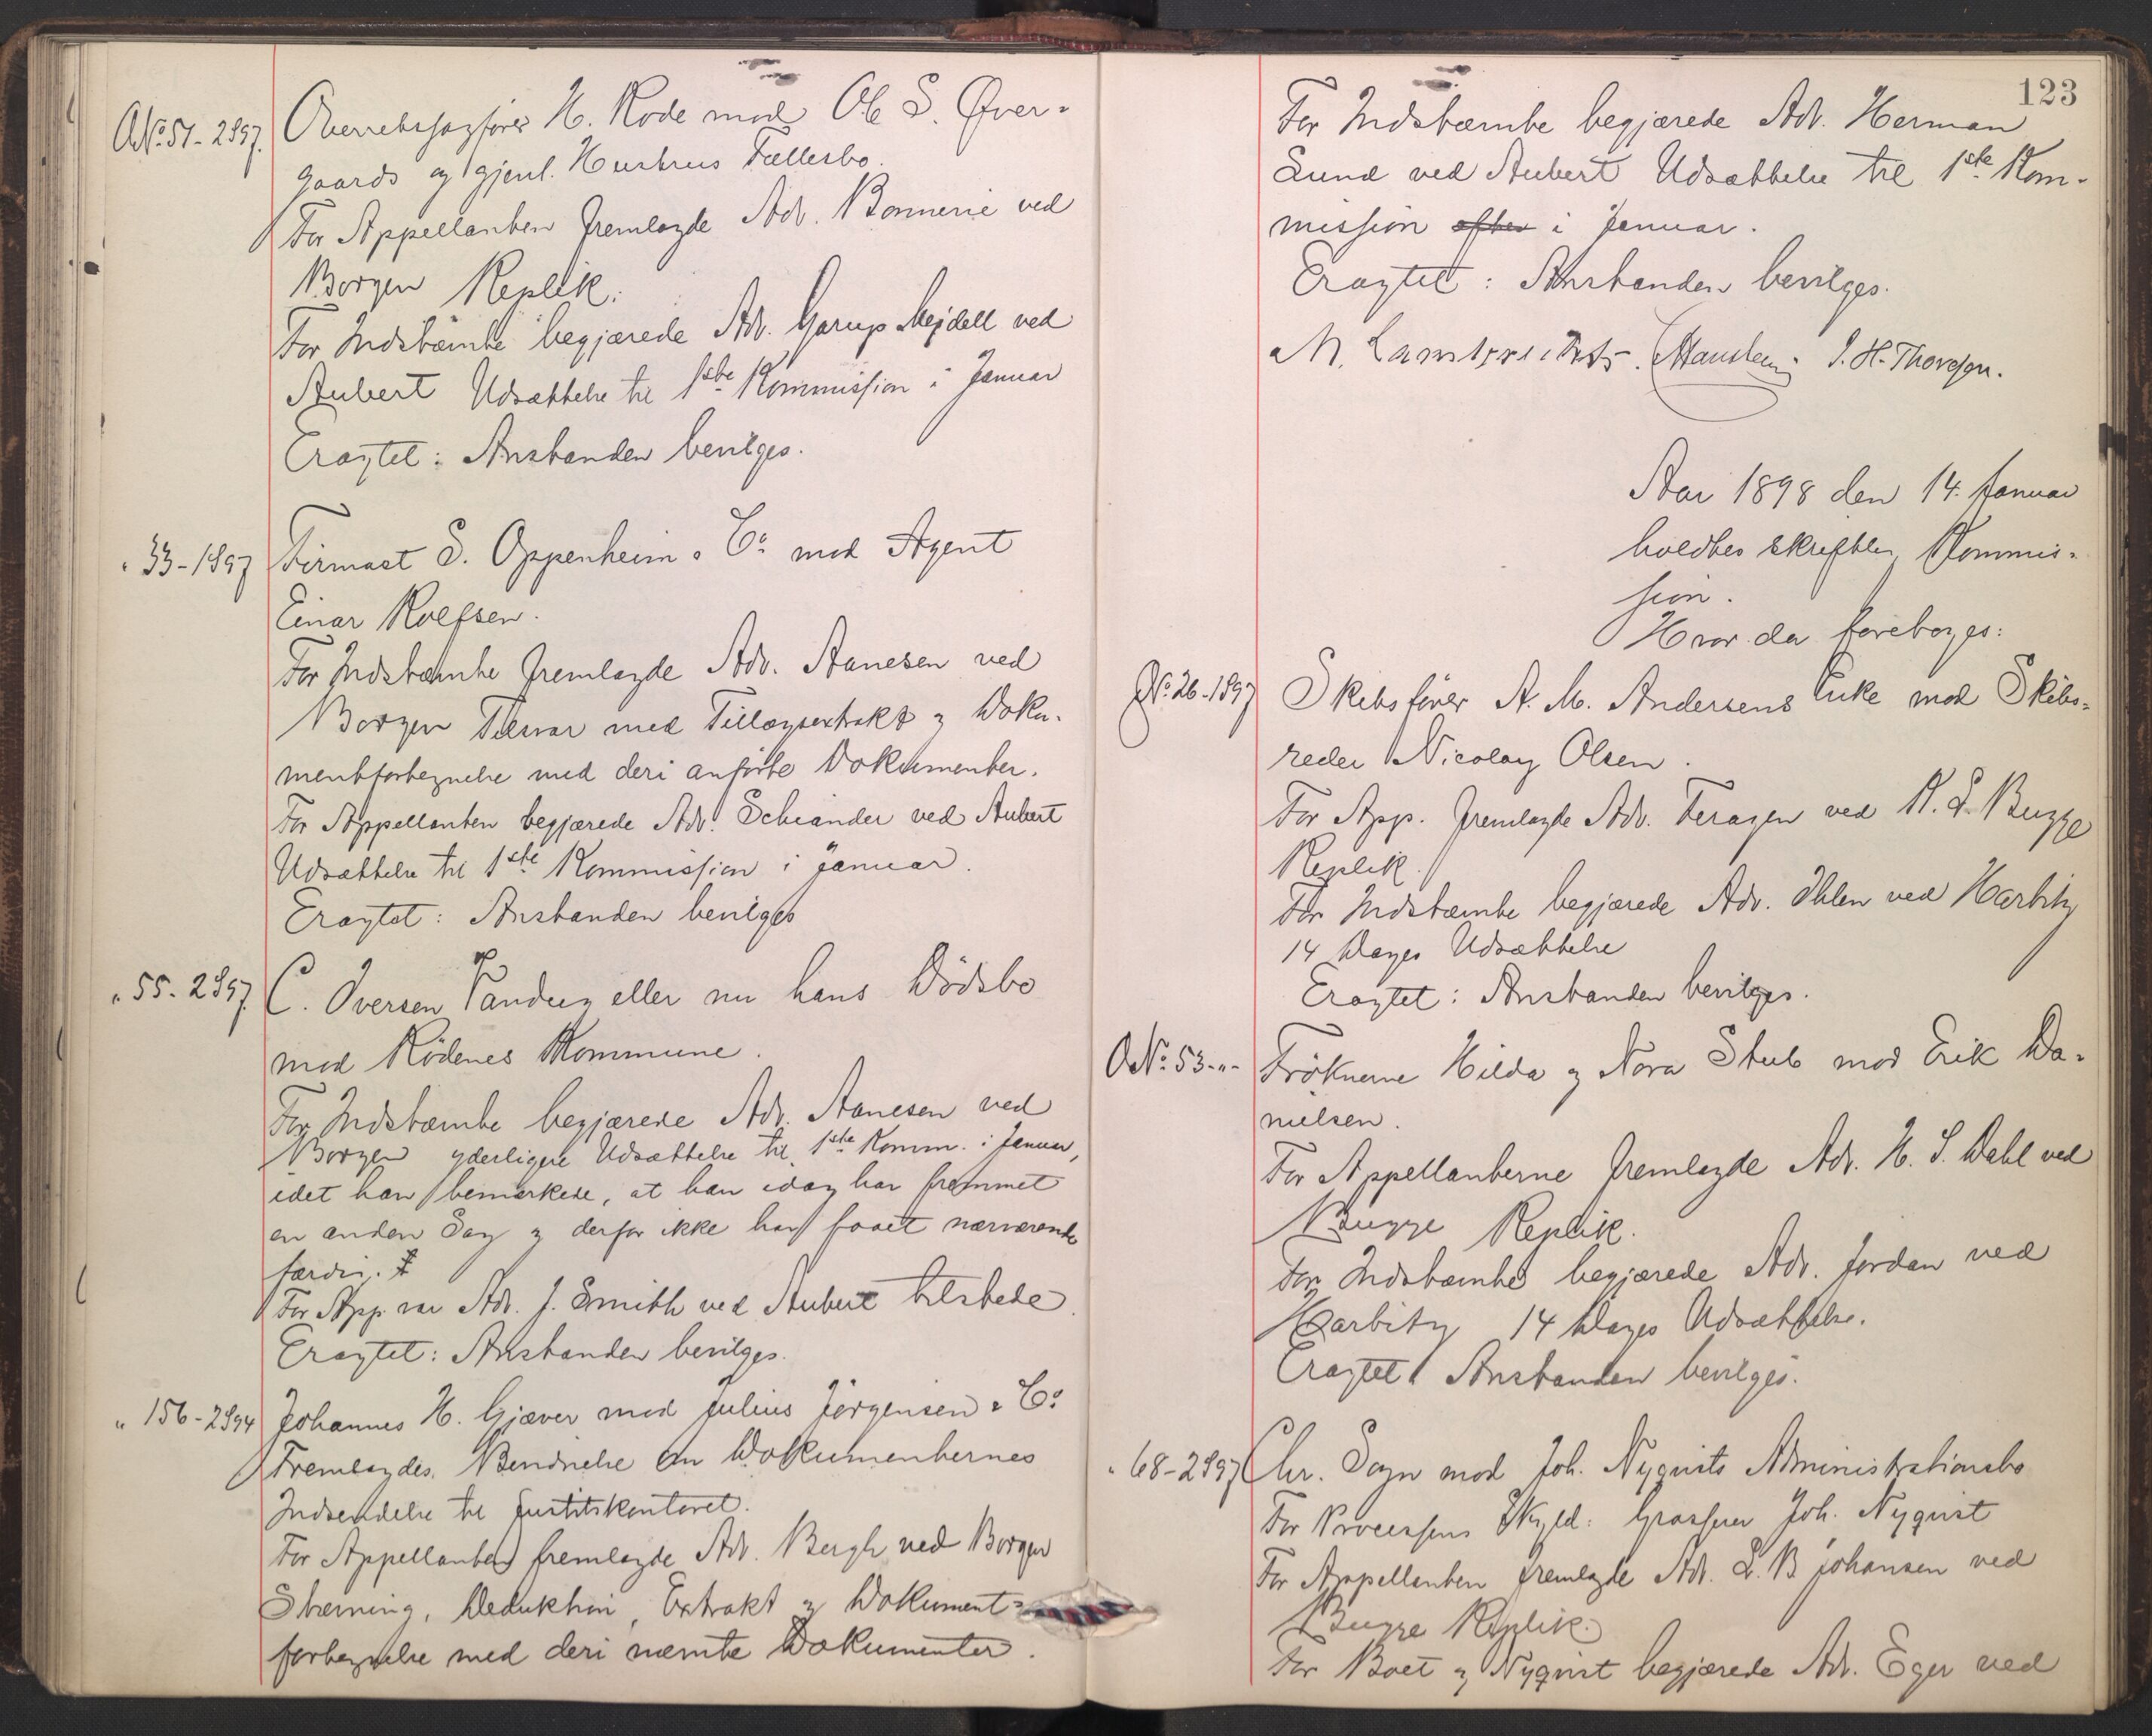 O.N.º 51-2 1897. Overretssagfører H. Rode mod Ole S. Øver-
gaards og gjenl. Hustrus Fællesbo.
For Appellanten fremlagde Adv. Bonnevie ved
Borgen Replik.
For Indstævnte begjærede Adv. Garup Mejdell ved
Aubert Udsættelse til 1ste Kommission i Januar
Eragtet: Anstanden bevilges.
" 33-1897 Firmaet S. Oppenheim & Co mod Agent
Einar Rolfsen.
For Indstævnte fremlagde Adv. Aanesen ved
Borgen Tilsvar med Tillægsextrakt og Doku-
mentfortegnelse med deri anførte Dokumenter.
For Appellanten begjærede Adv. Schiander ved Aubert
Udsættelse til 1ste Kommission i Januar.
Eragtet: Anstanden bevilges
" 55-2 1897. C. Iversen eller nu hans Dödsbo
mod Rödenes Kommune.
For Indstævnte begjærede Adv. Aanesen ved
Borgen yderligere Udsættelse til 1ste Komm. i Januar,
idet han bemærkede, at han idag har fremmet
en anden Sag og derfor ikke har faaet nærværende
færdig.
For App. var Adv. J. Smith ved Aubert tilstede.
Eragtet: Anstanden bevilges.
" 156-2 1894 Johannes H. Gjæver mod Julius Jörgensen & Co
Fremlagdes Bevidnelse om Dokumenternes
Indsendelse til Justitskontoret.
For Appellanten fremlagde Adv. Bergh ved Borgen
Stævning, Deduktion, Extrakt og Dokument-
fortegnelse med deri nævnte Dokumenter.
123
For Indstævnte begjærede Adv. Herman
Lund ved Aubert Udsættelse til 1ste Kom-
mission efter i Januar.
Eragtet: Anstanden bevilges.
M. Lambrechts. Manthey J. H. Thoresen.
Aar 1898 den 14. Januar
holdtes skriftlig Kommis-
sion.
Hvor da foretoges:
N.º 26-1897 Skibsförer A. M. Andersens Enke mod Skibs-
reder Nicolay Olsen.
For App. fremlagde Adv. Feragen ved K. L. Bugge
Replik.
For Indstævnte begjærede Adv. Ihlen ved Harbitz
14 Dages Udsættelse
Eragtet: Anstanden bevilges.
O.N.º 53-"- Fröknerne Hilda og Nora Stub mod Erik Da-
nielsen.
For Appellanterne fremlagde Adv. H. S. Dahl ved
Bugge Replik.
For Indstævnte begjærede Adv. Jordan ved
Harbitz 14 Dages Udsættelse.
Eragtet: Anstanden bevilges.
" 68-2 1897 Chr. Sogn mod Joh. Nyquists Administrationsbo
For Processens Skyld: Grosserer Joh. Nyquist
For Appellanten fremlagde Adv. L. B Johansen ved
Bugge Replik.
For Boet og Nyquist begjærede Adv. Eger ved